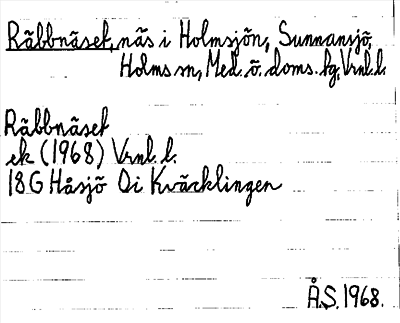 Räbbnäset, näs i Holmsjön, Sunnansjö,
Holms sn, Med. ö. doms. tg, Vrnl. l.
Räbbnäset
ek (1968) Vrnl. l.
18G Håsjö Di Kväcklingen
Å.S. 1968.